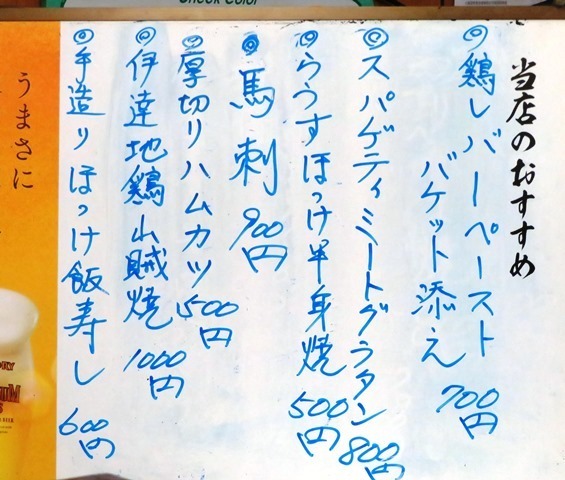 当店のおすすめ
◎鶏レバーペースト
バケット添え 700円
◎スパゲティミートグラタン 800円
◎らうすほっけ半身焼 500円
◎馬刺 900円
◎厚切りハムカツ 500円
◎伊達地鶏山賊焼 1000円
◎手造りほっけ飯寿し 600円
うまさに